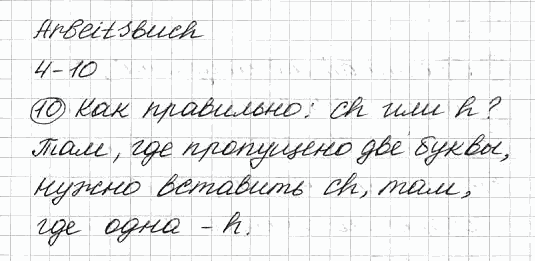 Arbeitsbuch
4-10
10 Как правильно: ch или h?
Там, где пропущено две буквы,
нужно вставить ch, там,
где одна - h.